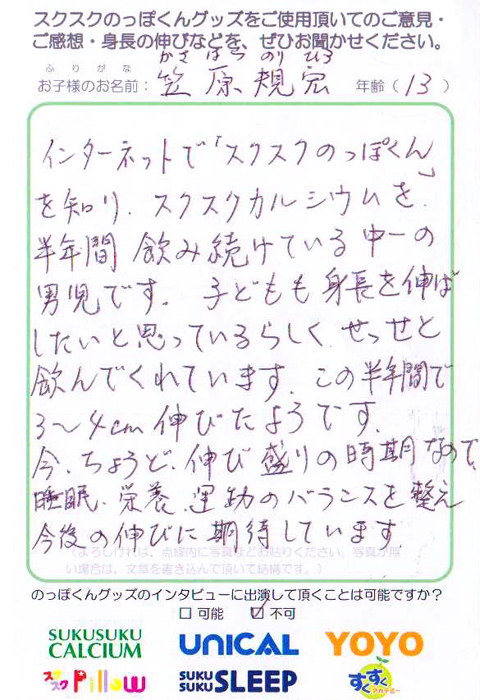 スクスクのっぽくんグッズをご使用頂いてのご意見・
ご感想・身長の伸びなどを、ぜひお聞かせください。
ふりがな かさはら のりひろ
お子様のお名前： 笠原規宏 年齢（13）
インターネットで「スクスクのっぽくん」
を知り、スクスクカルシウムを、
半年間 飲み続けている中一の
男児です。 子どもも身長を伸ば
したいと思っているらしく、せっせと
飲んでくれています。この半年間で
3〜4cm伸びたようです。
今、ちょうど、伸び盛りの時期なので、
睡眠、栄養、運動のバランスを整え
今後の伸びに期待しています。
（よろしければ、点線内に写真などお貼りください。写真が無
い場合は、文章を書き込んで頂いて結構です。）
のっぽくんグッズのインタビューに出演して頂くことは可能ですか？
□ 可能 ☑ 不可
SUKUSUKU CALCIUM UNICAL YOYO
スクスク Pillow SUKU SUKU SLEEP すくすくアカデミー